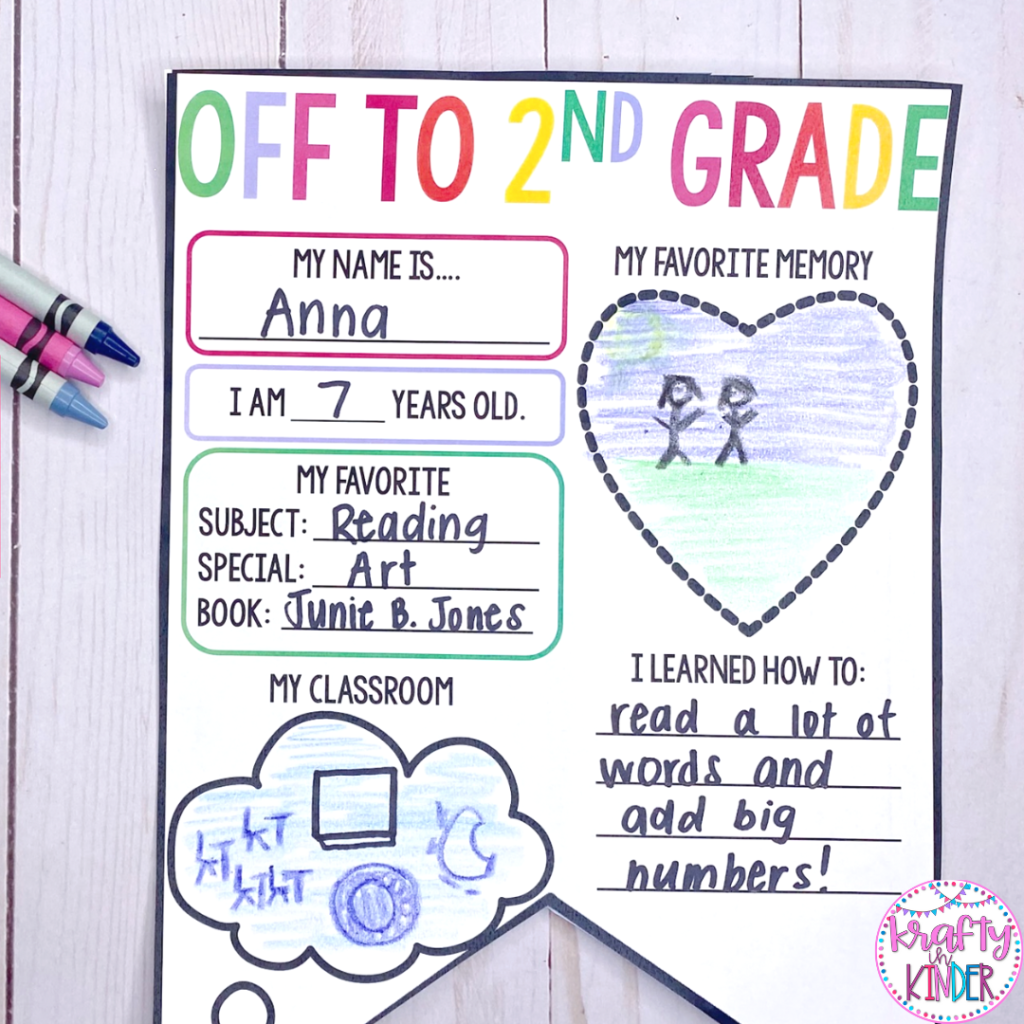 OFF TO 2ND GRADE
MY NAME IS....
Anna
I AM 7 YEARS OLD.
MY FAVORITE
SUBJECT: Reading
SPECIAL: Art
BOOK: Junie B. Jones
MY CLASSROOM
MY FAVORITE MEMORY
I LEARNED HOW TO:
read a lot of
words and
add big
numbers!
krafty
in
KINDER